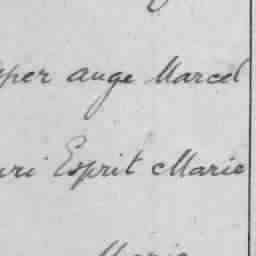 ange Marcel
Esprit Marie
Marie